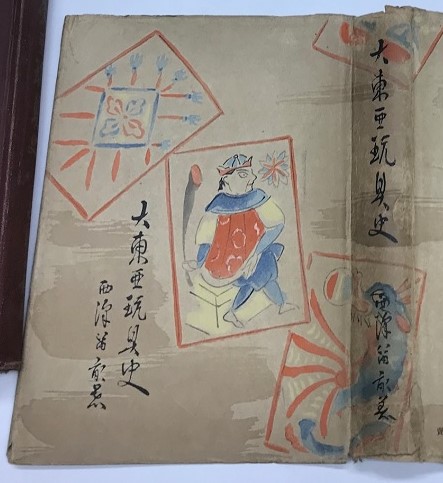 大東亜玩具史
西澤笛畝著
大東亜玩具史
西澤笛畝著